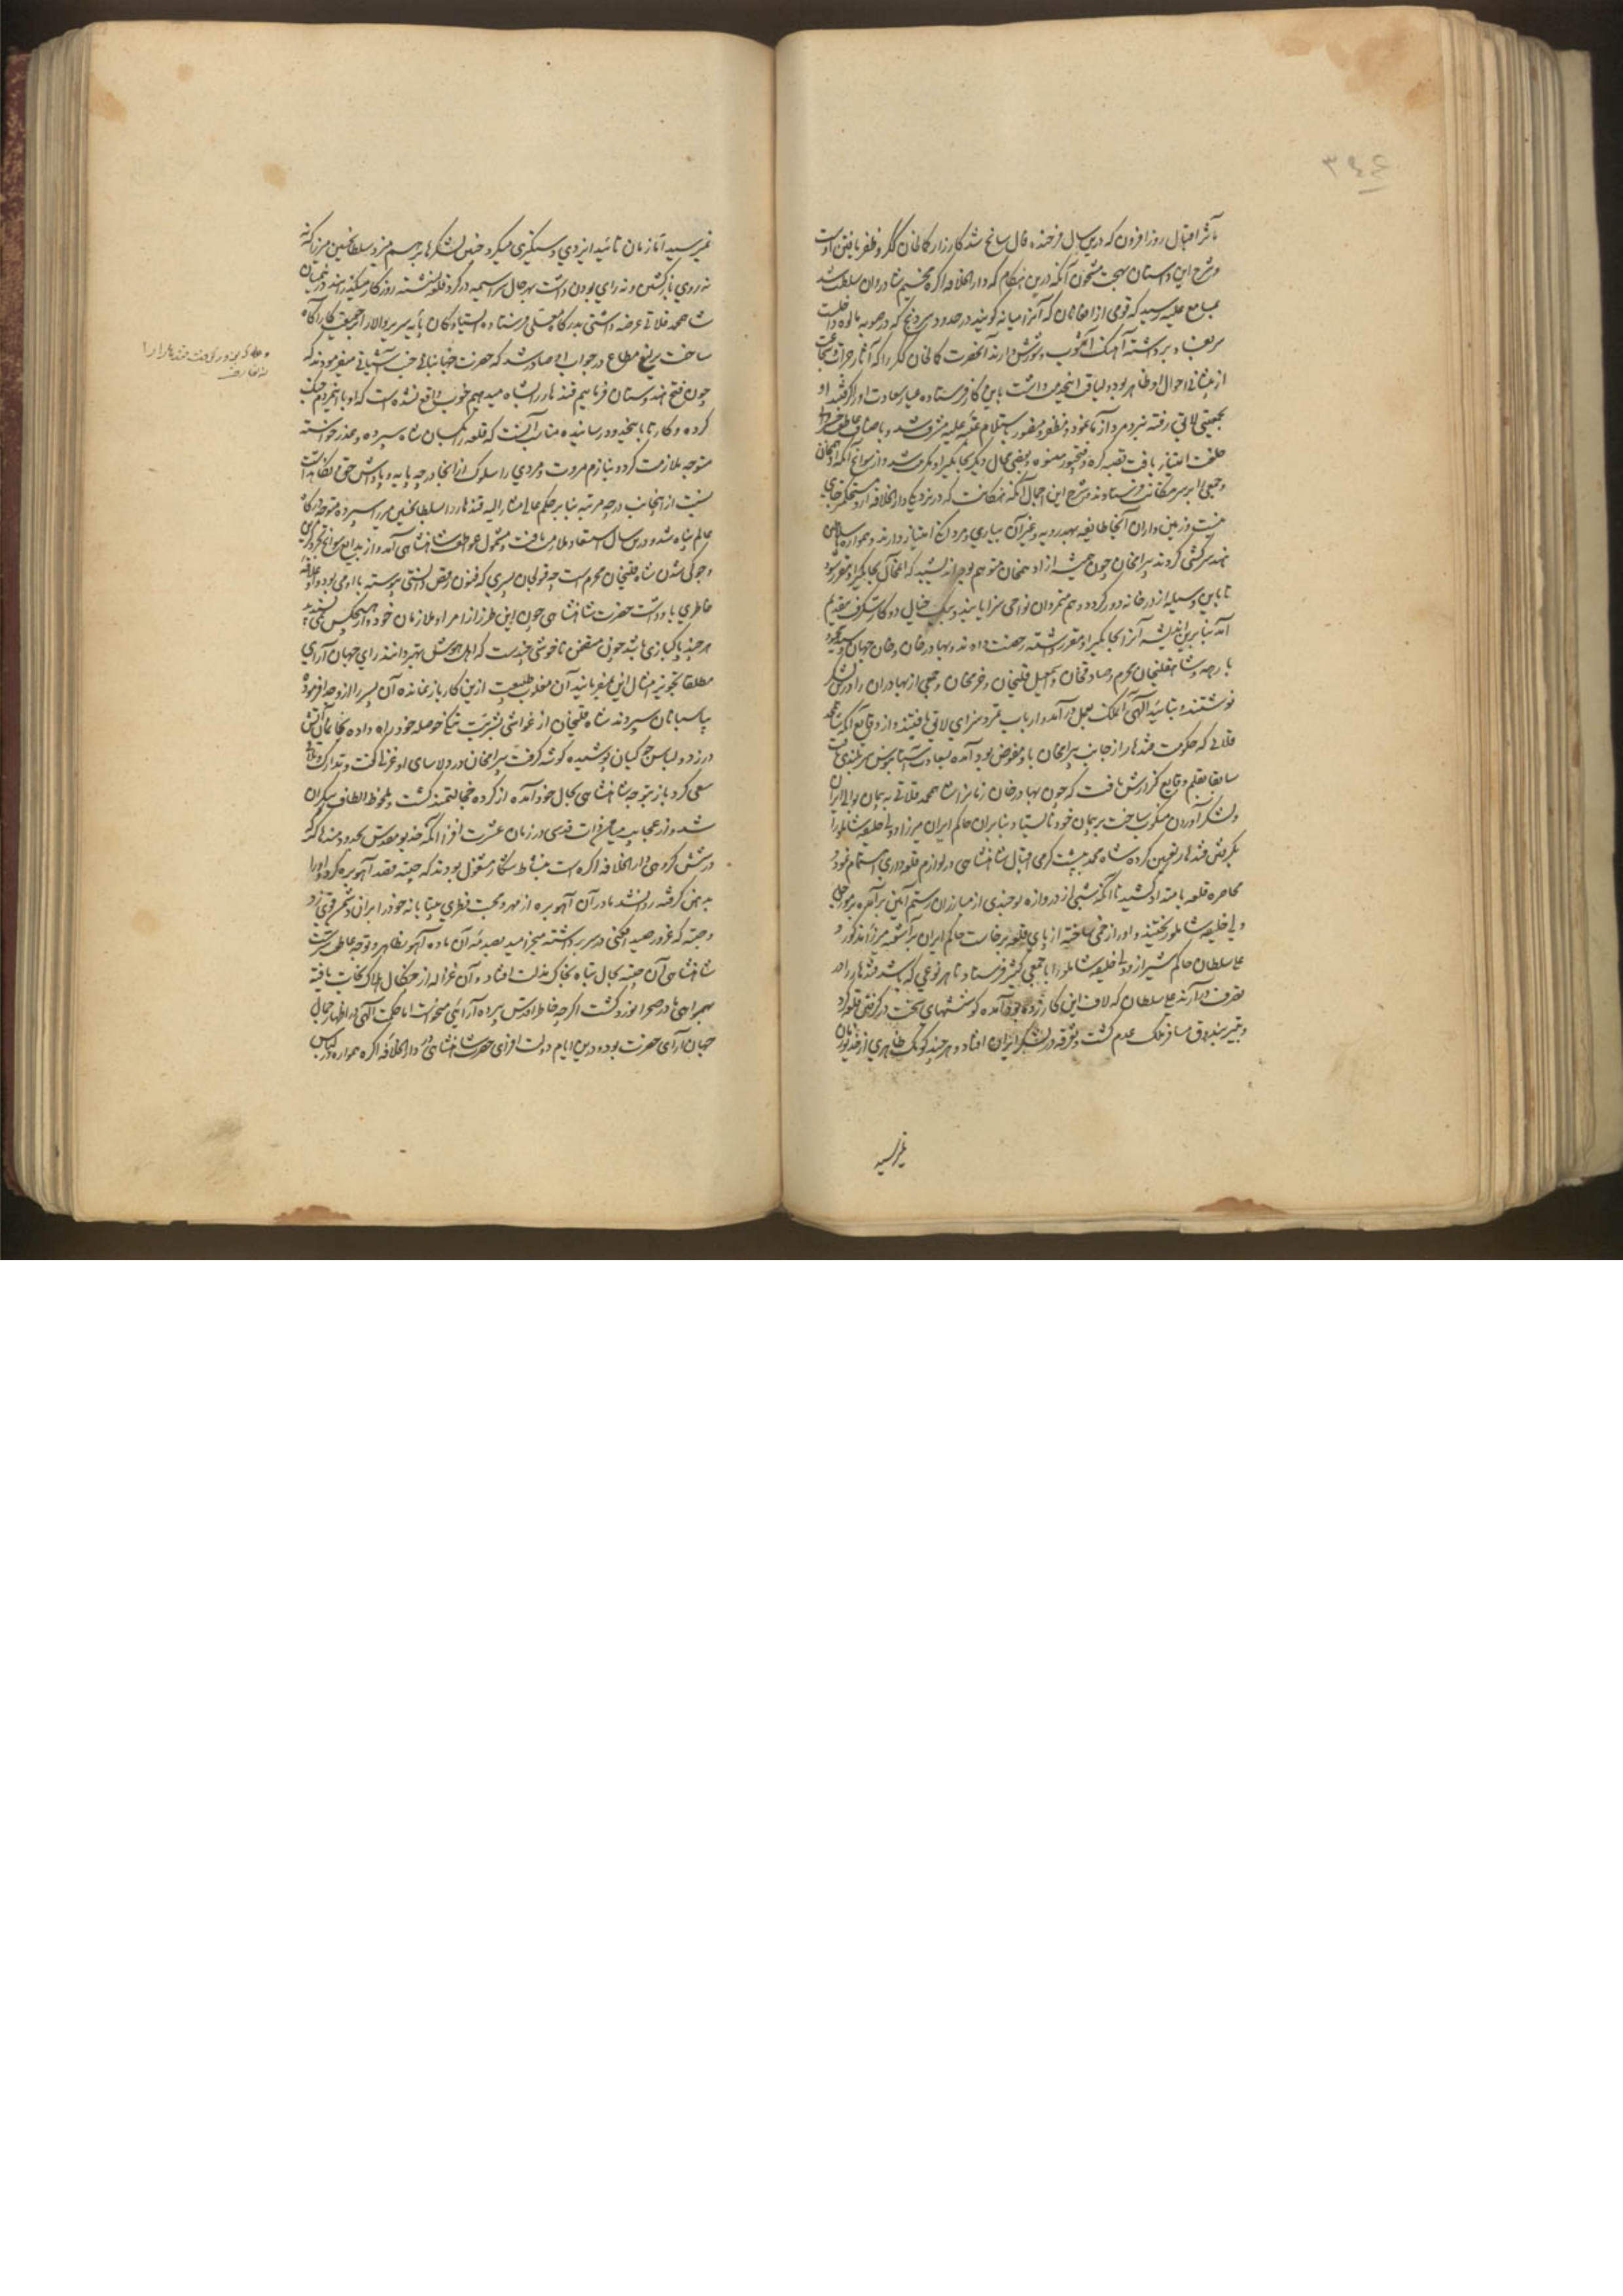 ۳۹۴
مآثر اقبال روزافزون که درین سال فرخنده فال سانح شد کارزار کمالخان گکر و ظفر یافتن اوست
و شرح این داستان بهجت عنوان آنکه درین هنگام که دارالخلافه آگره مخیم سرادقات سلطنت شد
بمسامع علیه رسید که قومی از افغانان که آنرا میانه گویند در حدود سرونج که در صوبه مالوه داخلست
سر بفساد برداشته آهنگ آشوب و شورش دارند آنحضرت کمالخان گکر را که آثار جرأت و شجاعت
از پیشانی احوال او ظاهر بود و لیاقت این خدمت داشت باین کار فرستاده او
بجمعیتی لایق رفته نبرد مردآزما نمود و مظفر و منصور باستلام عتبه علیه مشرف شد و باصناف عواطف
خلعت امتیاز یافت قصبه کره و فتحپور هنسوه و بعضی محال دیگر بجایگیر او مکرمت شد و از سوانح آنکه ادهمخان
و جمعی را بر سر هتکانت فرستادند و شرح این اجمال آنکه هتکانت که در نزدیکی دارالخلافه آگره مستحکم جائی
هست و زمین‌داران آنجا طایفه بهدوریه و غیر آن به بسیاری و مردانگی امتیاز دارند و همواره بسلاطین
هند سرکشی کردند بیرامخان چون همیشه از ادهمخان متوهم بود اندیشید که آن محال بجایگیر او مقرر شود
تا باین وسیله از درخانه دور گردد و هم متمردان نواحی سزا یابند و بیک خیال دو کار شگرف بتقدیم
آید بنابرین اندیشه آنرا بجایگیر او مقرر داشته رخصت دادند و بهادرخان و خان جهان و سید محمود
بارهه و شاه قلیخان محرم و صادقخان و اسمعیل قلیخان و خرمخان و جمعی از بهادران را در لشکر
نوشتند و بتائید الهی آن ملک بعمل درآمد و ارباب تمرد سزای لایق یافتند و از وقایع آنکه شاه محمد
قلاتی که حکومت قندهار از جانب بیرامخان باو مفوض بود آمده بسعادت آستانبوس سربلندی یافت
سابقا بقلم وقایع گزارش یافت که چون بهادرخان را شاه محمد قلاتی به پیمان بوالی ایران
و لشکر آوردن منکوب ساخت بر پیمان خود نایستاد بنابران حاکم ایران میرزا و ولی خلیفه شاملو را
بگرفتن قندهار تعیین کرده شاه محمد به پشت گرمی اقبال شاهنشاهی در لوازم قلعه‌داری اهتمام نمود و
محاصره قلعه بامتداد کشید تا آنکه شبی از دروازه نو چندی از مبارزان رستم آئین برآمده بر مورچل
ولی خلیفه شاملو ریختند و او را زخمی ساخته از پای قلعه برخاست حاکم ایران برآشفته میرزا مذکور و
علی سلطان حاکم شیراز و ولی خلیفه شاملو را با جمعی کثیر فرستاد تا بهر نوعی که باشد قندهار را در
تصرف درآرند علی سلطان که لاف این کار زده بود آمده کوششهای سخت در گرفتن قلعه کرد
و بتیر بندوق مسافر ملک عدم گشت و تفرقه در لشکر ایران افتاد و هرچند کومک ظاهری از خدیو زمان
نمیرسید
نمیرسید اما زمان زمان تائید ایزدی دستگیری میکرد چنین لشکرها برهم میزد سلطان حسین میرزا که
نه روی بازگشتن و نه رای بودن داشت بهر حال سراسیمه در گرد قلعه نشسته روزگار میگذرانید درینمیان
شاه محمد قلاتی عرضه‌داشتی بدرگاه معلی فرستاده ایستادگان پایه سریر والا را از حقیقت کار آگاه
ساخت یرلیغ مطاع در جواب او صادر شد که حضرت جهانبانی جنت آشیانی میفرمودند که
چون فتح هندوستان فرمائیم قندهار را بشاه میدهیم خوب واقع نشده است که او باین مردم جنگ
کرده و کار تا باینحد رسانیده مناسب آنست که قلعه را بکسان شاه سپرده و عذر خواسته
متوجه ملازمت گردد نیازم مروت و مردی را سلوک از آنجا در چه پایه و پاداش حق نگاهداشت
نسبت از اینجانب در چه مرتبه بنابر حکم عالی مشارالیه قندهار را بسلطان حسین میرزا سپرده متوجه درگاه
عالم پناه شد و درین سال استسعاد ملازمت یافت و مشمول عواطف شاهنشاهی آمد و از بدایع سوانح تجرد گزیدن
و جوگی شدن شاه قلیخان محرم است چه قبولخان پسری که فنون رقص دانستی پیوسته با او می بود و او علاقه
خاطری باو داشت حضرت شاهنشاهی چون این طرز از امرا و ملازمان خود و از هیچکس نمی پسندیدند
هرچند پاکبازی باشد چون متضمن ناخوشی چندست که اهل هوش بهتر دانند رای جهان آرای
مطلقا تجویز امثال این نمیفرمایند آن مغلوب طبیعت ازین کار باز نمانده آن پسر را ازو جدا فرموده
بپاسبانان سپردند شاه قلیخان از غواشی بشریت تنگی حوصله خود راه داده بخانمان آتش
در زد و لباس جوگیان پوشیده گوشه گرفت بیرامخان در دلاسای او غزلها گفت و تدارک وقت
سعی کرد باز بتوجه شاهنشاهی بحال خود آمده از کرده خجالتمند گشت و ملحوظ الطاف بیکران
شد و از عجایب میامن ذات قدسی در زمان عشرت افزا آنکه خدیو مقدس بحدود مندهاکر که
در شش کروهی دارالخلافه آگره است بنشاط شکار مشغول بودند که چیته قصد آهو بره کرد و او را
بدهن گرفته روان شد مادر آن آهو بره از مهر و محبت فطری بیتابانه خود را بران دشمن قوی زد
و چیته که غرور صید افگنی در سر برداشته میخرامید بصدمه آن ماده آهو بظاهر و توجه عاطفت سرشت
شاهنشاهی آن چیته بحال تباه بخاک مذلت افتاد و آن غزاله از چنگال هلاک نجات یافته
بهمراهی مادر صحرا نورد گشت اگرچه خاطر اقدس پرده آرائی میخواست اما حکمت الهی در اظهار جمال
جهان آرای حضرت بود و درین ایام دولت افزای حضرت شاهنشاهی در دارالخلافه آگره همواره در لباس